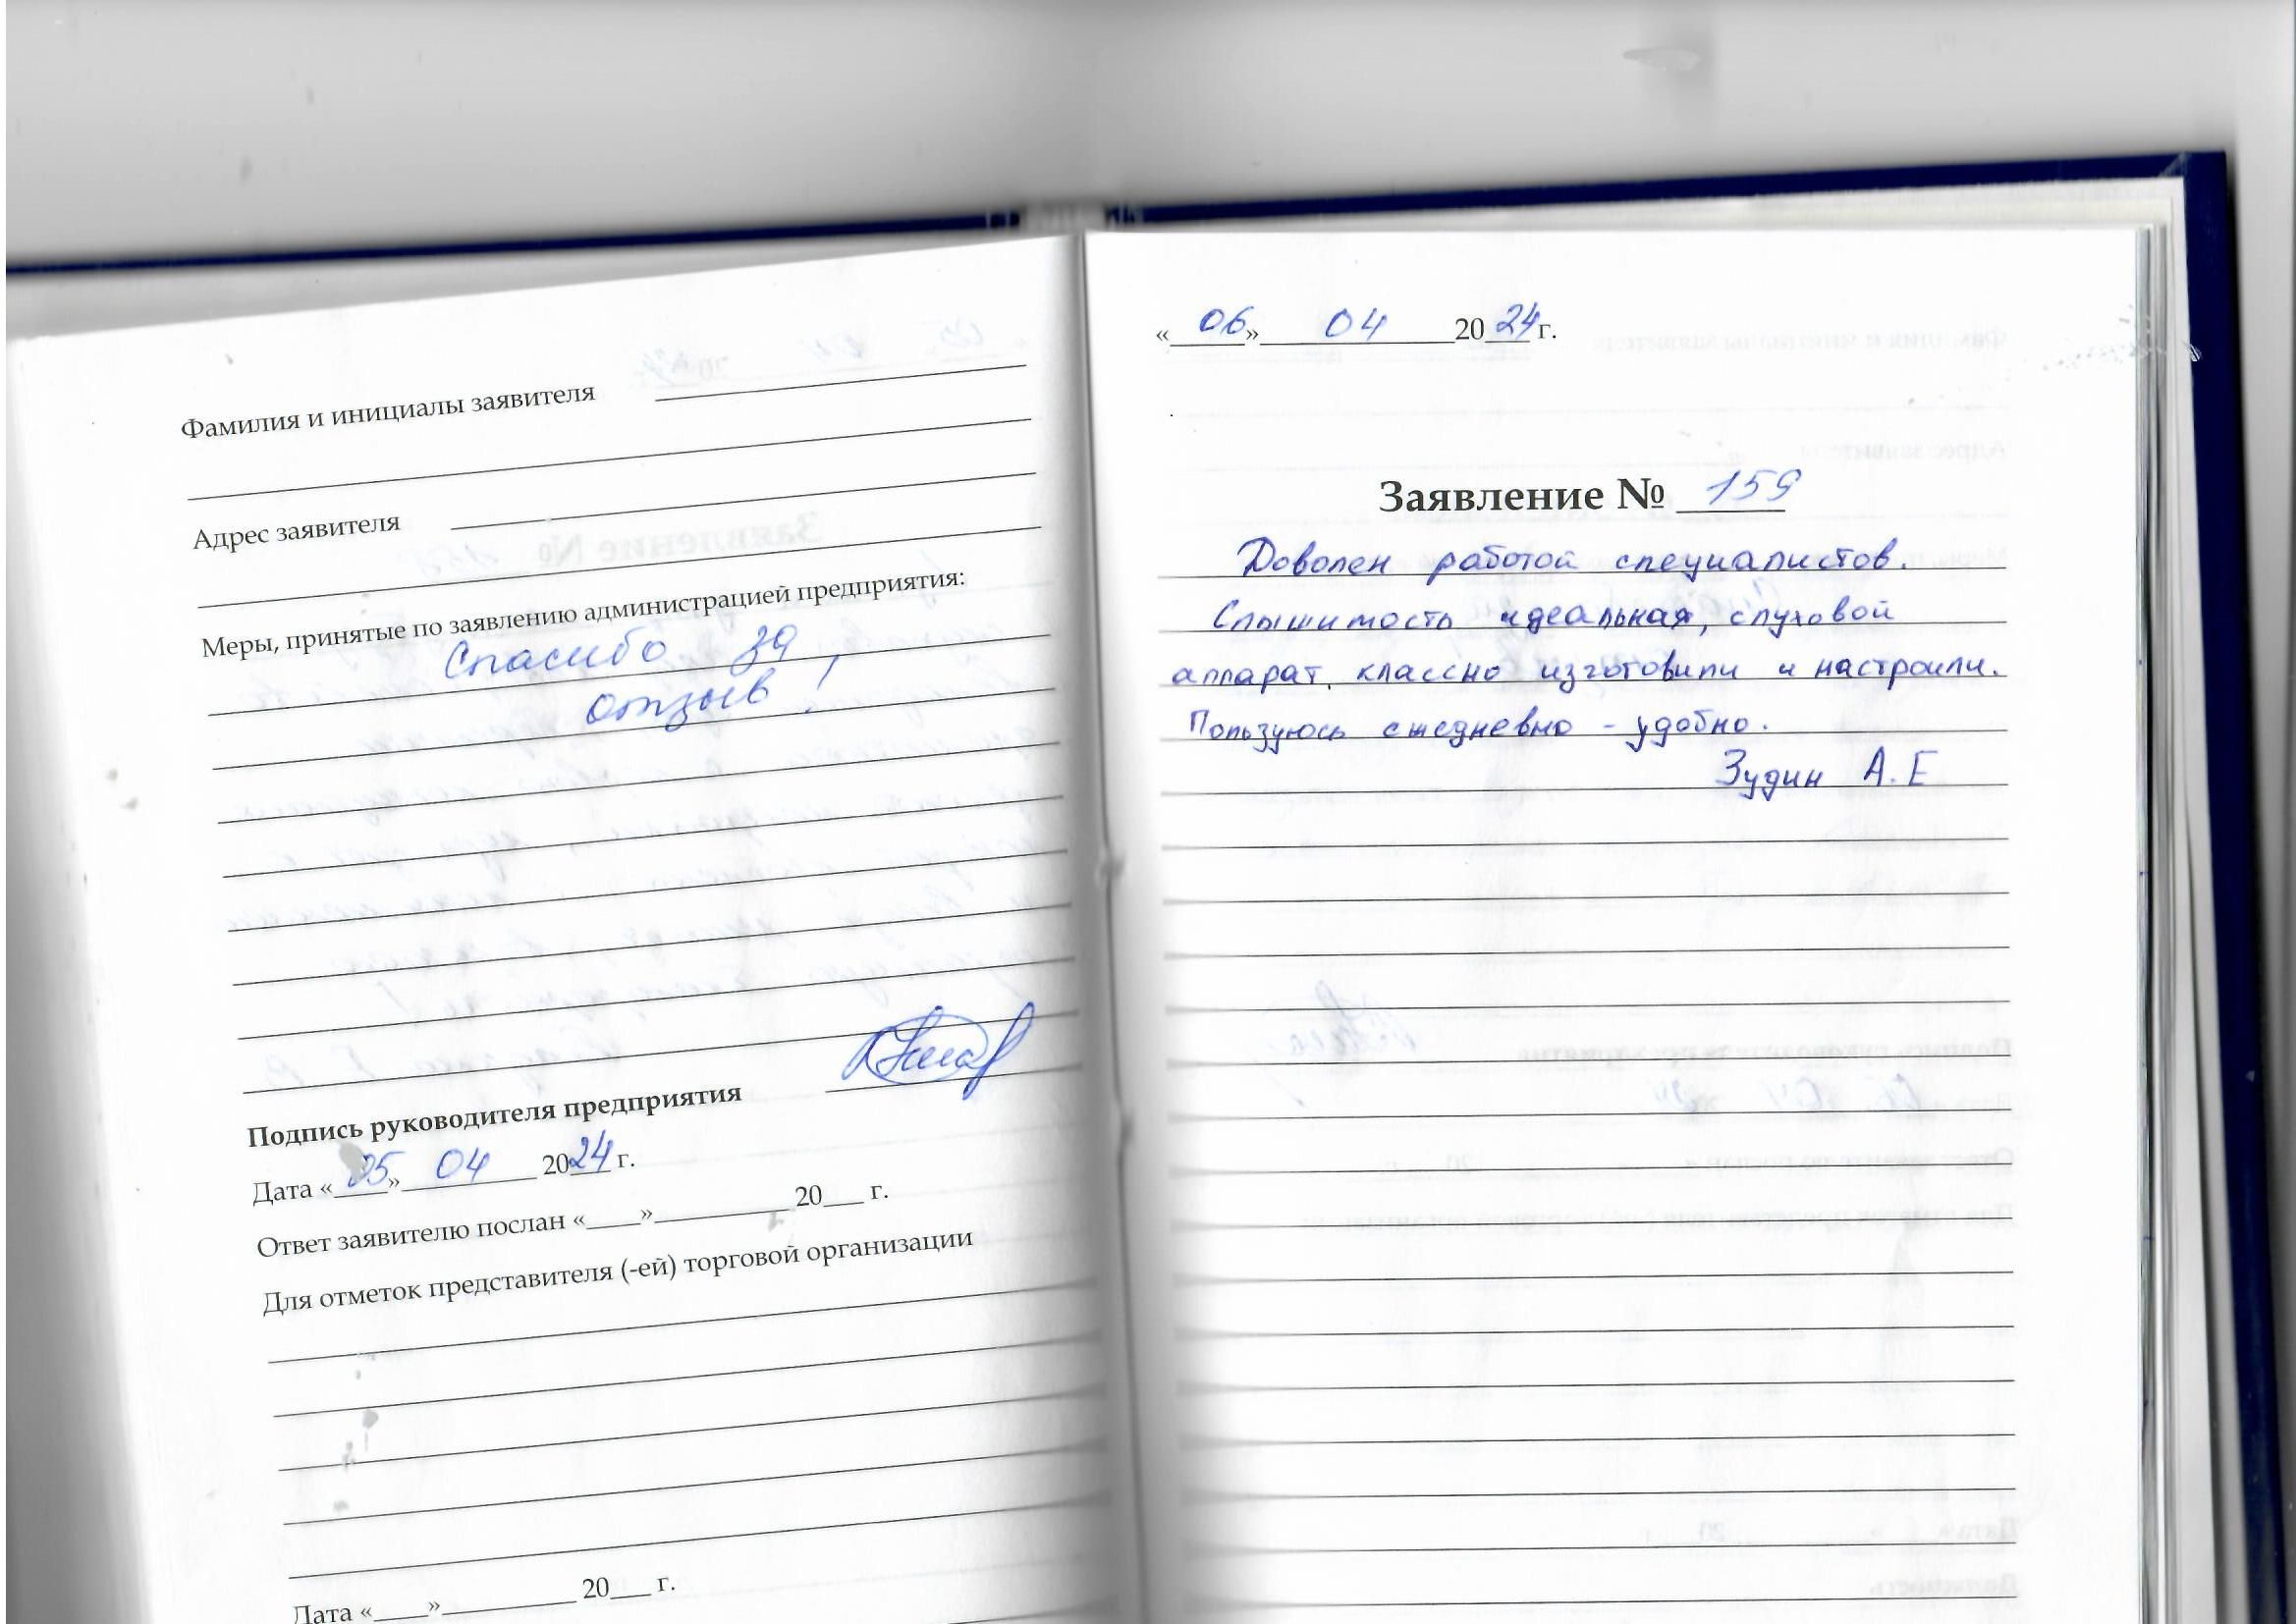 Фамилия и инициалы заявителя
Адрес заявителя
Меры, принятые по заявлению администрацией предприятия:
Спасибо за
отзыв!
Подпись руководителя предприятия
Дата «05» 04 2024 г.
Ответ заявителю послан «____»__________ 20___ г.
Для отметок представителя (-ей) торговой организации
Дата «____»__________ 20___ г.
«06» 04 2024 г.
Заявление № 159
Доволен работой специалистов.
Слышимость идеальная, слуховой
аппарат классно изготовили и настроили.
Пользуюсь ежедневно - удобно.
Зудин А.Е